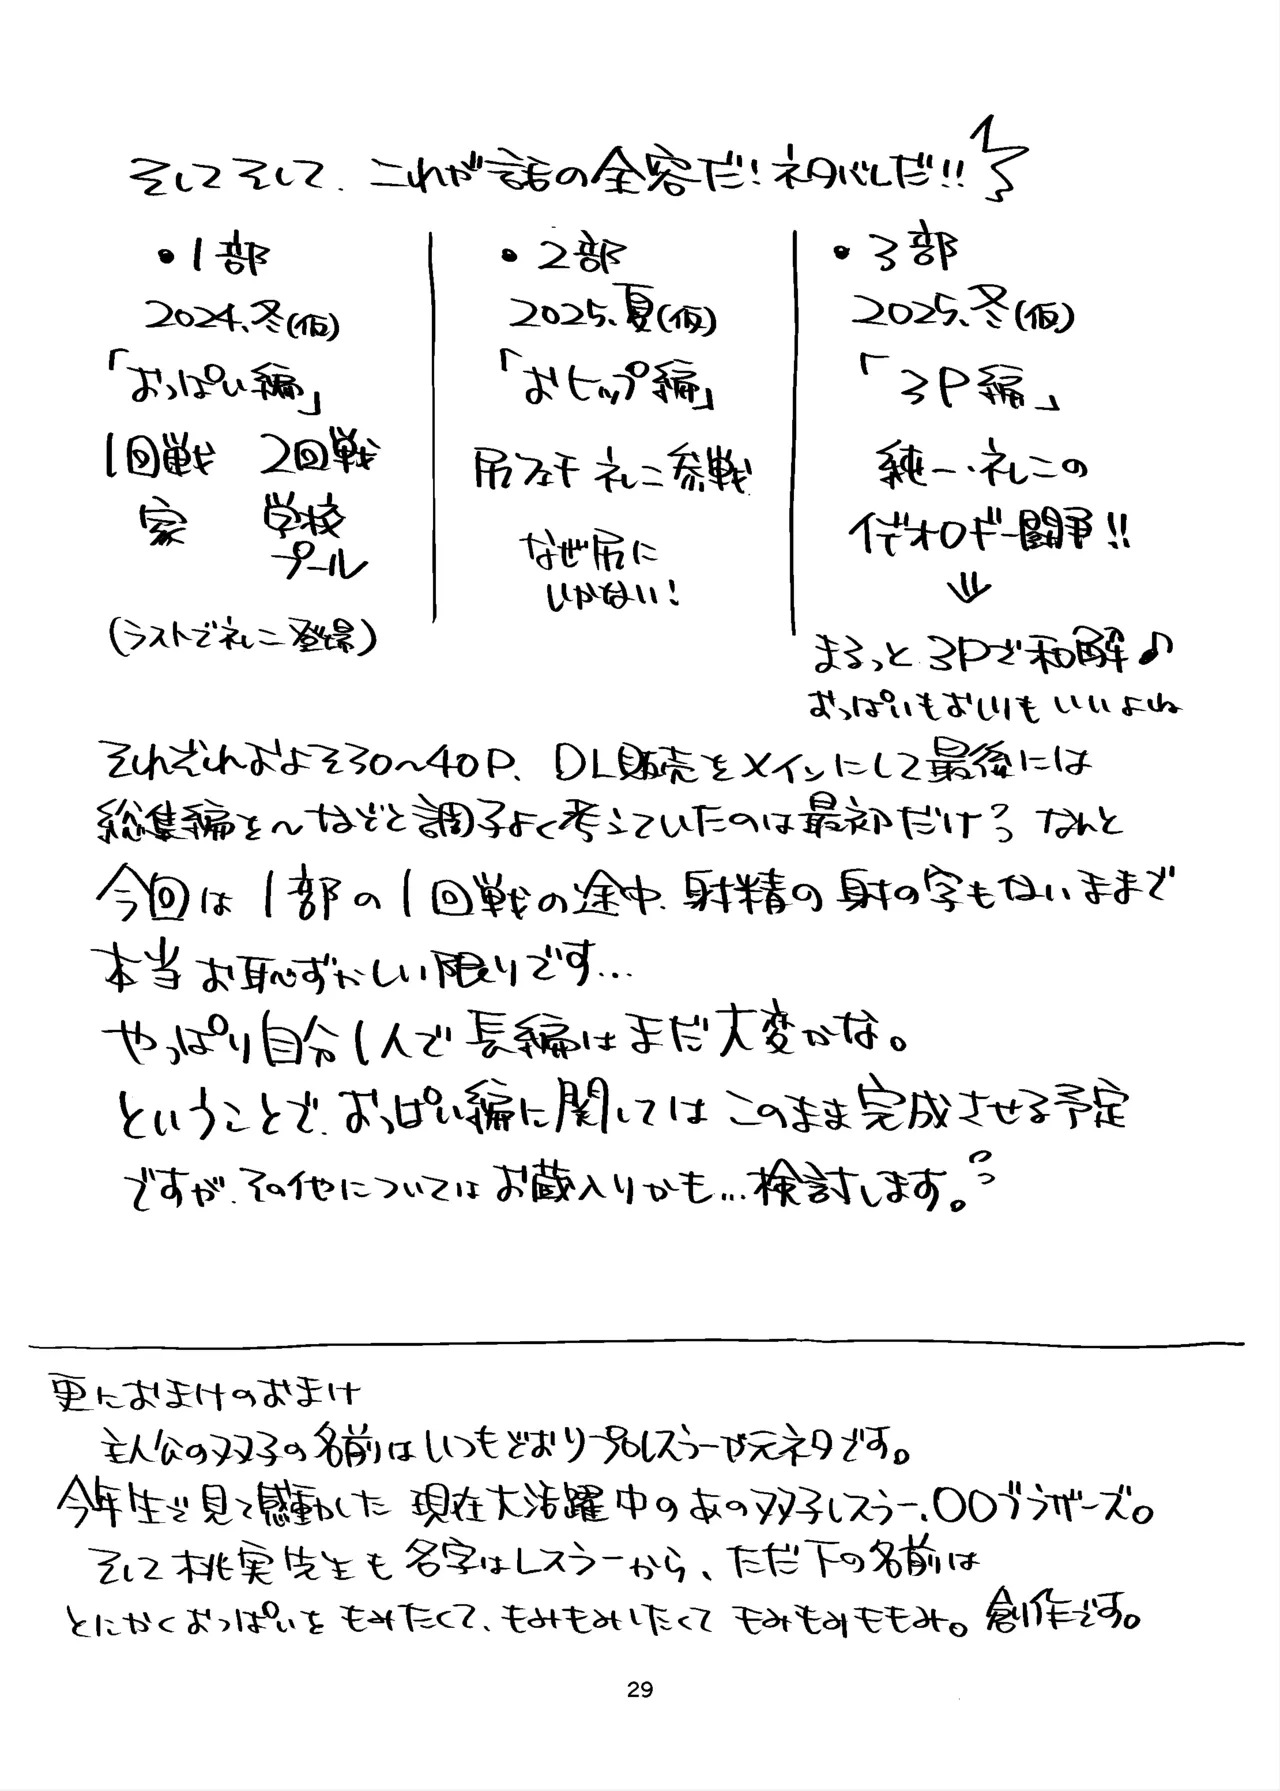 そしてそして、これが話の全容だ！ネタバレだ!!
・1部
2024.冬(仮)
「おっぱい編」
1回戦 2回戦
家 学校
プール
(ラストでネレニ登場)
・2部
2025.夏(仮)
「おヒップ編」
尻フェチ ネレニ参戦
なぜ尻に
いかない！
・3部
2025.冬(仮)
「3P編」
純一・ネレニの
イデオロギー闘争!!
⇓
まるっと3Pで和解♪
おっぱいもお尻もいいよね
それぞれおよそ30〜40P、DL販売をメインにして最後には
総集編を〜などと調子よく考えていたのは最初だけ？なんと
今回は1部の1回戦の途中、射精の射の字もないままで
本当お恥ずかしい限りです…
やっぱり自分1人で長編はまだ大変かな。
ということで、おっぱい編に関してはこのまま完成させる予定
ですが、その他についてはお蔵入りかも…検討します。
更におまけのおまけ
主人公の双子の名前はいつもどおりプロレスラーが元ネタです。
今年生で見て感動した現在大活躍中のあの双子レスラー、〇〇ブラザーズ。
そして桃実先生も名字はレスラーから、ただ下の名前は
とにかくおっぱいをもみたくて、もみもみしたくてもみもみももみ。創作です。
29